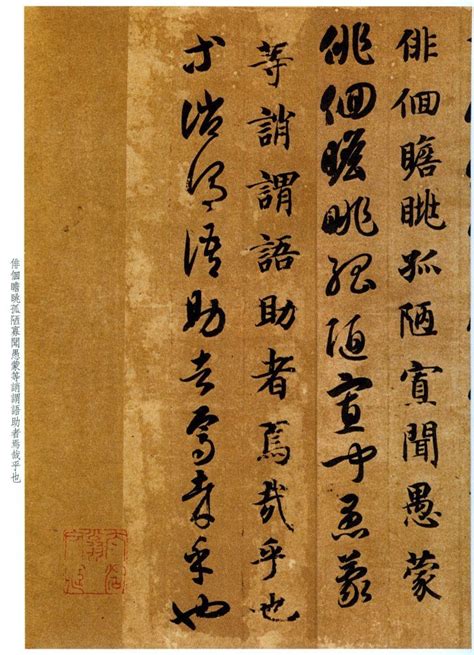 俳佪瞻眺孤陋寡聞愚蒙
俳佪瞻眺孤陋寡聞愚蒙
等誚謂語助者焉哉乎也
等誚謂語助者焉哉乎也
俳佪瞻眺孤陋寡聞愚蒙等誚謂語助者焉哉乎也